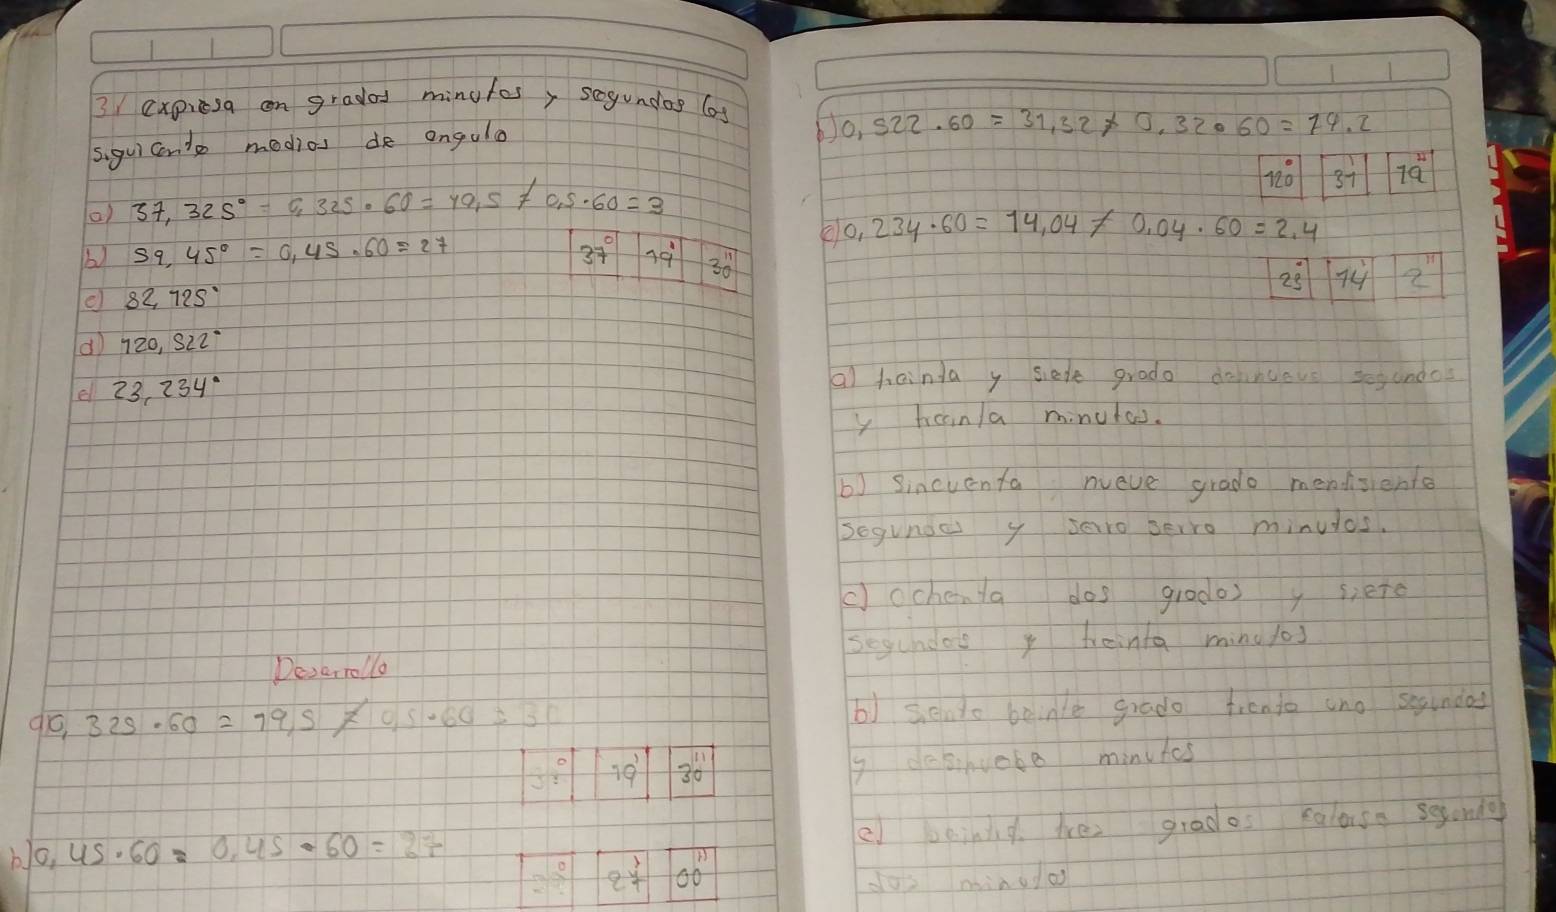 3) expresa en grados minutos y segundos los
siguiente medios de angulo
a) 37,325° = 0,325 . 60 = 19,5 ≠ 0,5 . 60 = 3
b) 59,45° = 0,45 . 60 = 27
37° 19' 30''
c) 82,125°
d) 120,522°
e) 23,234°
Desarrollo
a) 0,325 . 60 = 19,5 ≠ 0,5 . 60 = 30
19' 30''
b) 0,45 . 60 = 0,45 . 60 = 27
27' 00''
b) 0,522 . 60 = 31,32 ≠ 0,32 . 60 = 19.2
120° 31' 19''
e) 0,234 . 60 = 14,04 ≠ 0,04 . 60 = 2,4
23° 14' 2''
a) treinta y siete grado segundos
y treinta minutos.
b) sincuenta nueve grado
segundos y serro serro minutos.
c) ochenta dos grados y siete
segundos y treinta minutos
b) siento beinte grado uno segundos
y minutos
e) tres grados segundos
dos minutos